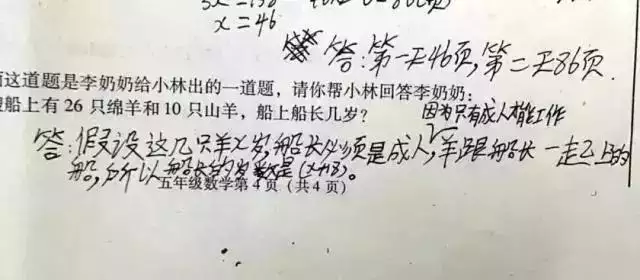 x=46
答:第一天46页,第二天86页.
这道题是李奶奶给小林出的一道题,请你帮小林回答李奶奶:
船上有26只绵羊和10只山羊,船上船长几岁?
因为只有成人才能工作
答:假设这几只羊x岁,船长必须是成人,羊是跟船长一起上的
船,所以船长的岁数是(x+18)。
五年级数学第4页(共4页)